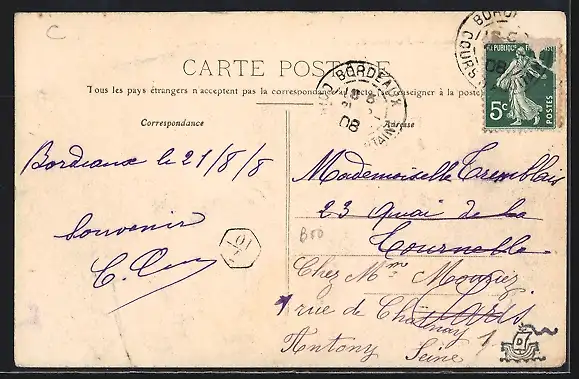 C
CARTE POSTALE
Tous les pays étrangers n'acceptent pas la correspondance au recto (Se renseigner à la poste)
Correspondance
Adresse
BORDEAUX
08
RÉPUBLIQUE FRANÇAISE
5c
POSTES
Bordeaux le 21/8/8
Souvenir
Mademoiselle Tremblais
23 Quai de la
Tournelle
B50
Chez Mme
Paris
rue de Châtenay
Antony Seine